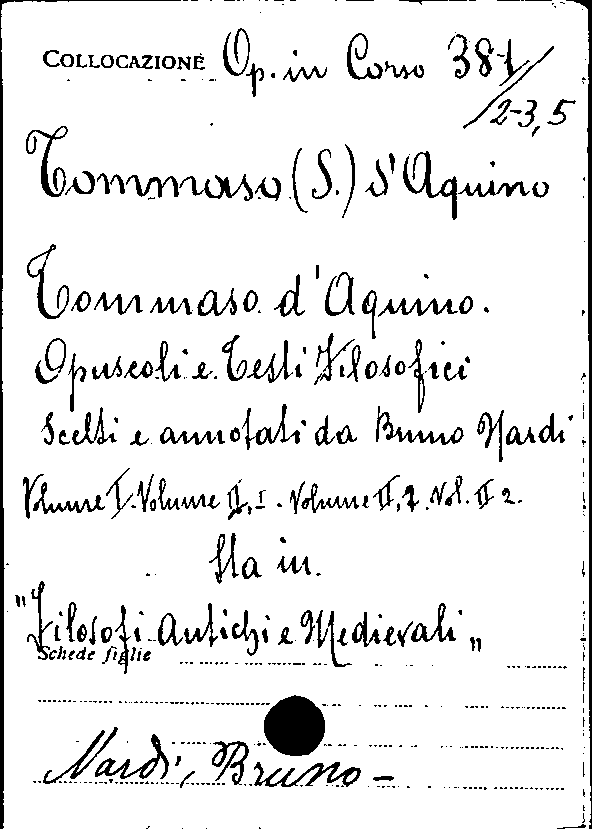 COLLOCAZIONE Op. in Corso 381/
/2-3,5
Tommaso (S.) d'Aquino
Tommaso d'Aquino.
Opuscoli e Testi Filosofici
Scelti e annotati da Bruno Nardi
Volume I. Volume II, I. Volume II, 2. Vol. II 2.
Sta in.
"Filosofi Antichi e Medievali"
Schede figlie
Nardi, Bruno -